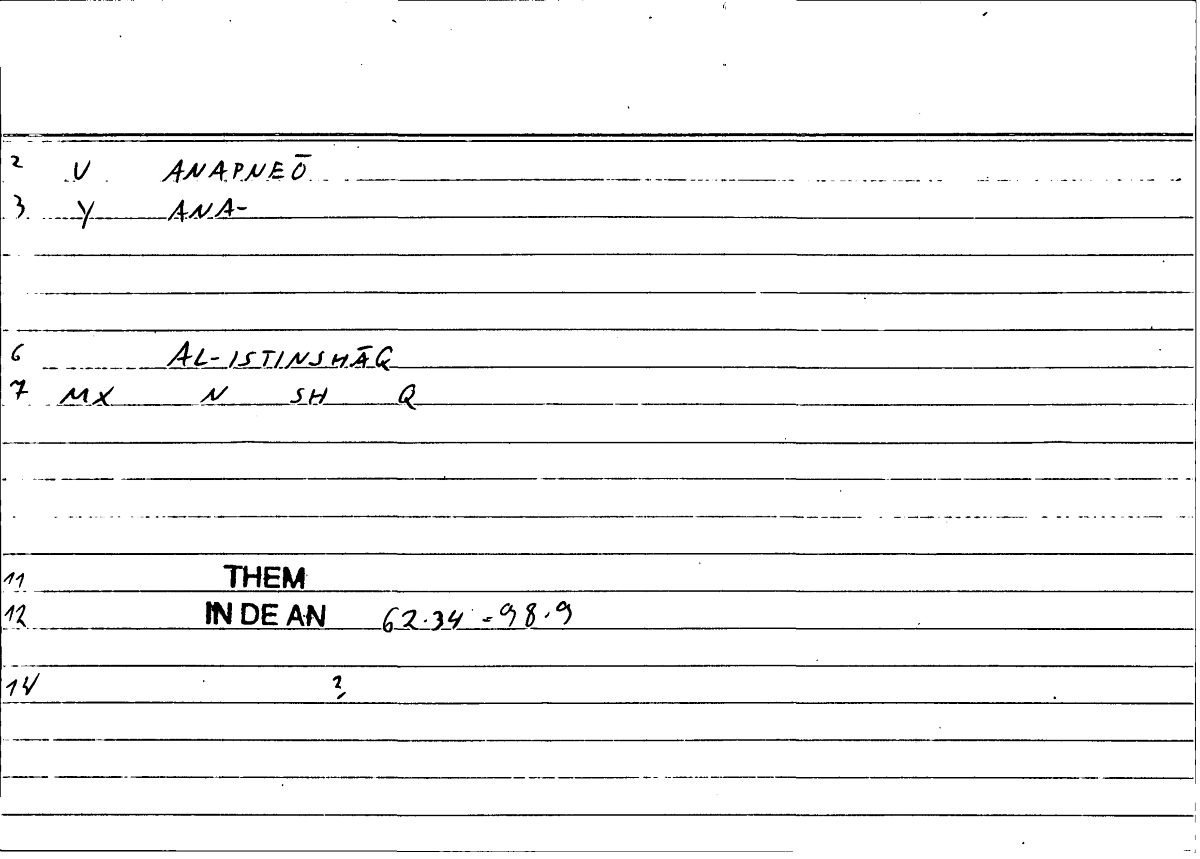 2 V ANAPNEŌ
3 Y ANA-
6 AL-ISTINSHĀQ
7 MX N SH Q
11 THEM
12 IN DE AN 62.34 = 98.9
14 2,